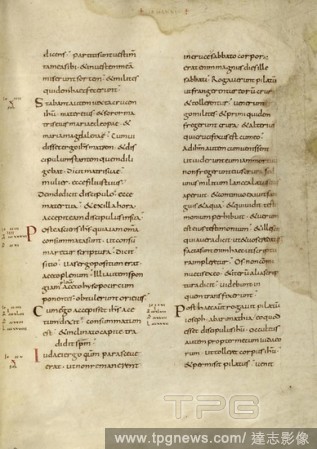 dicens partiti sunt vestim
miserunt sortem & milites
quidem haec fecerunt
Stabant autem iuxta crucem
ihu mater eius & soror ma
tris eius maria cleopae &
maria magdalene Cum vi
disset ergo ihs matrem & dis
cipulum stantem quem dili
gebat dicit matri suae
mulier ecce filius tuus
Deinde dicit discipulo ecce
mater tua & ex illa hora
accepit eam discipulus in sua
Postea sciens ihs quia iam omnia
consummata sunt ut consu
maretur scriptura dicit
sitio
aceto plenum Illi autem spon
giam
ponentes obtulerunt ori eius
Cum ergo accepisset ihs ace
tum dixit consummatum
est & inclinato capite tra
didit spm
Iudaei ergo qm parasceue
erat ut non remanerent
in cruce sabbato corpora
erat enim magnus dies ille
sabbati Rogaverunt pilatum
ut frangerentur eorum crura
& tollerentur venerunt
ergo milites & primi quidem
fregerunt crura & alterius
qui crucifixus est cum eo
Ad ihm autem cum venissent
ut viderunt eum iam mortuum
non fregerunt eius crura sed
unus militum lancea latus eius
aperuit & continuo exivit san
guis & aqua & qui vidit tes
timonium perhibuit & verum
est eius testimonium & ille scit
quia vera dicit ut & vos credatis
facta sunt enim haec ut scriptu
ra impleretur Os non com
minuetis ex eo & iterum alia scrip
tura dicit videbunt in
quem transfixerunt
Post haec autem rogavit pilatum
ioseph ab arimathia eo quod
esset discipulus ihu occultus
autem propter metum iudaeo
rum ut tolleret corpus ihu
& permisit pilatus venit
TPG
www.tpgnews.com | 達志影像